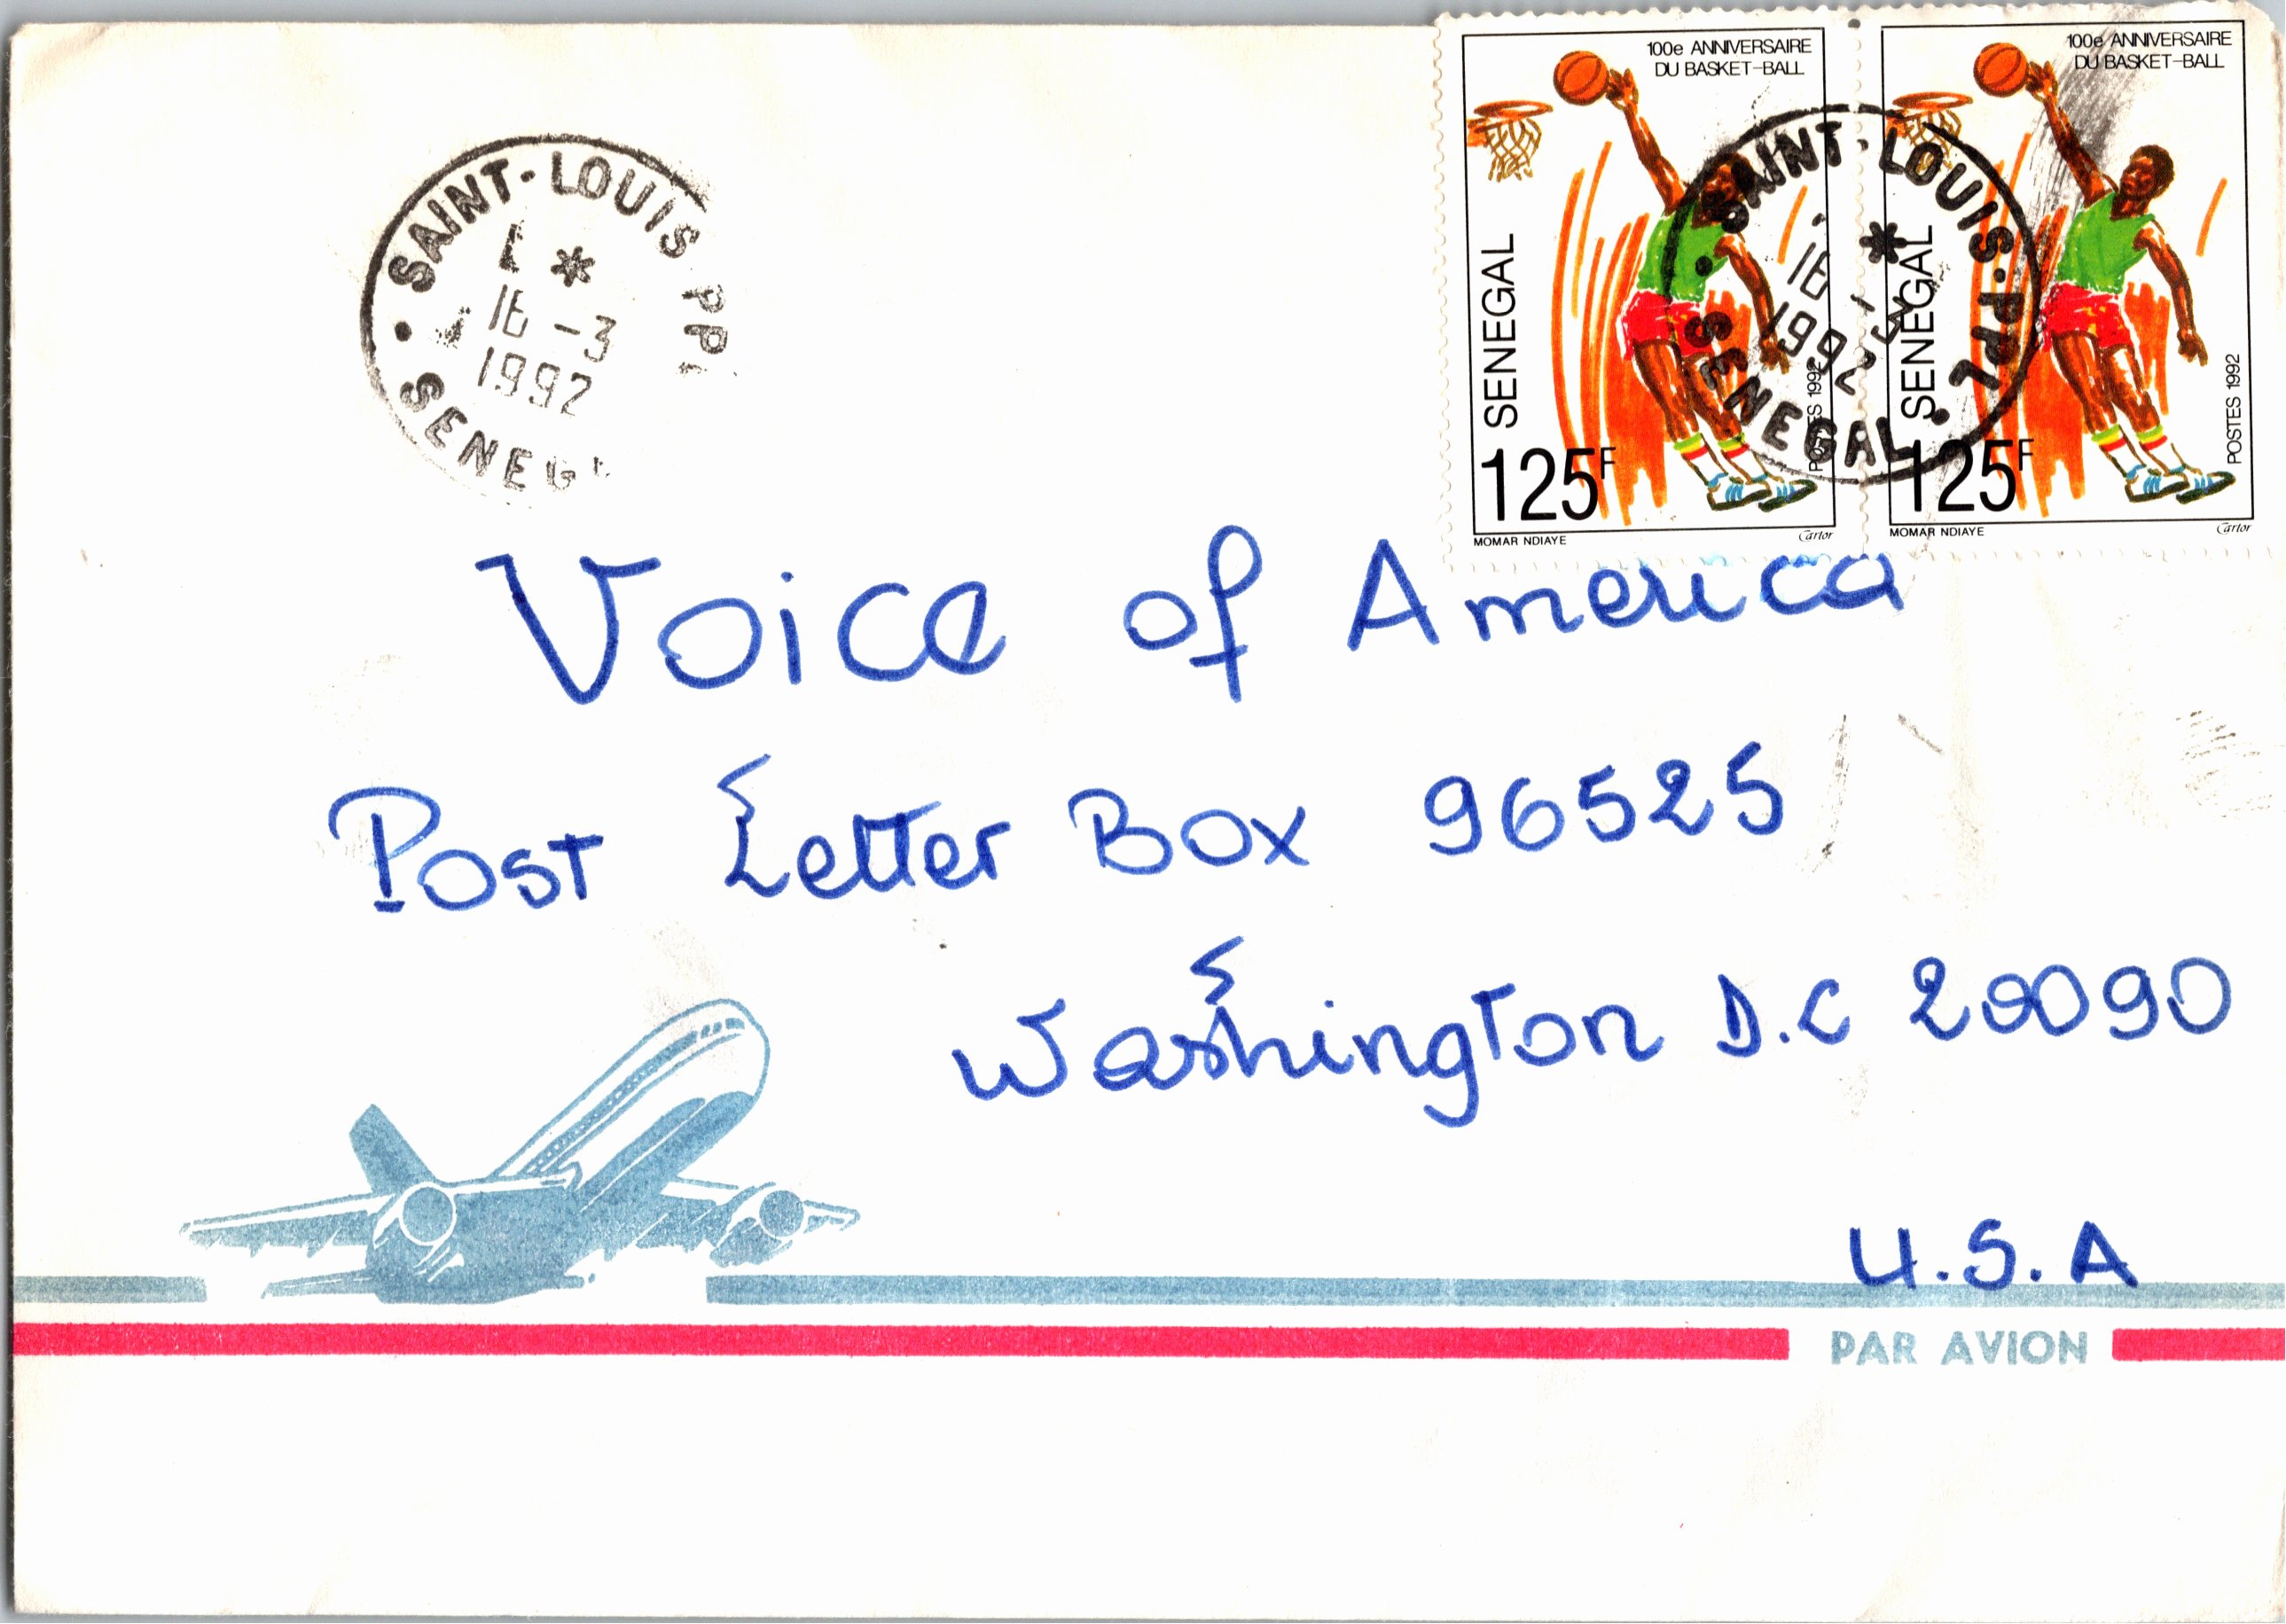 SAINT-LOUIS PPL
16 -3
1992
SENEGAL
100e ANNIVERSAIRE
DU BASKET-BALL
SENEGAL
125F
POSTES 1992
MOMAR NDIAYE
Cartor
100e ANNIVERSAIRE
DU BASKET-BALL
SENEGAL
125F
POSTES 1992
MOMAR NDIAYE
Cartor
SAINT-LOUIS-PPL
16 -3
1992
SENEGAL
Voice of America
Post Letter Box 96525
Washington D.C 20090
U.S.A
PAR AVION